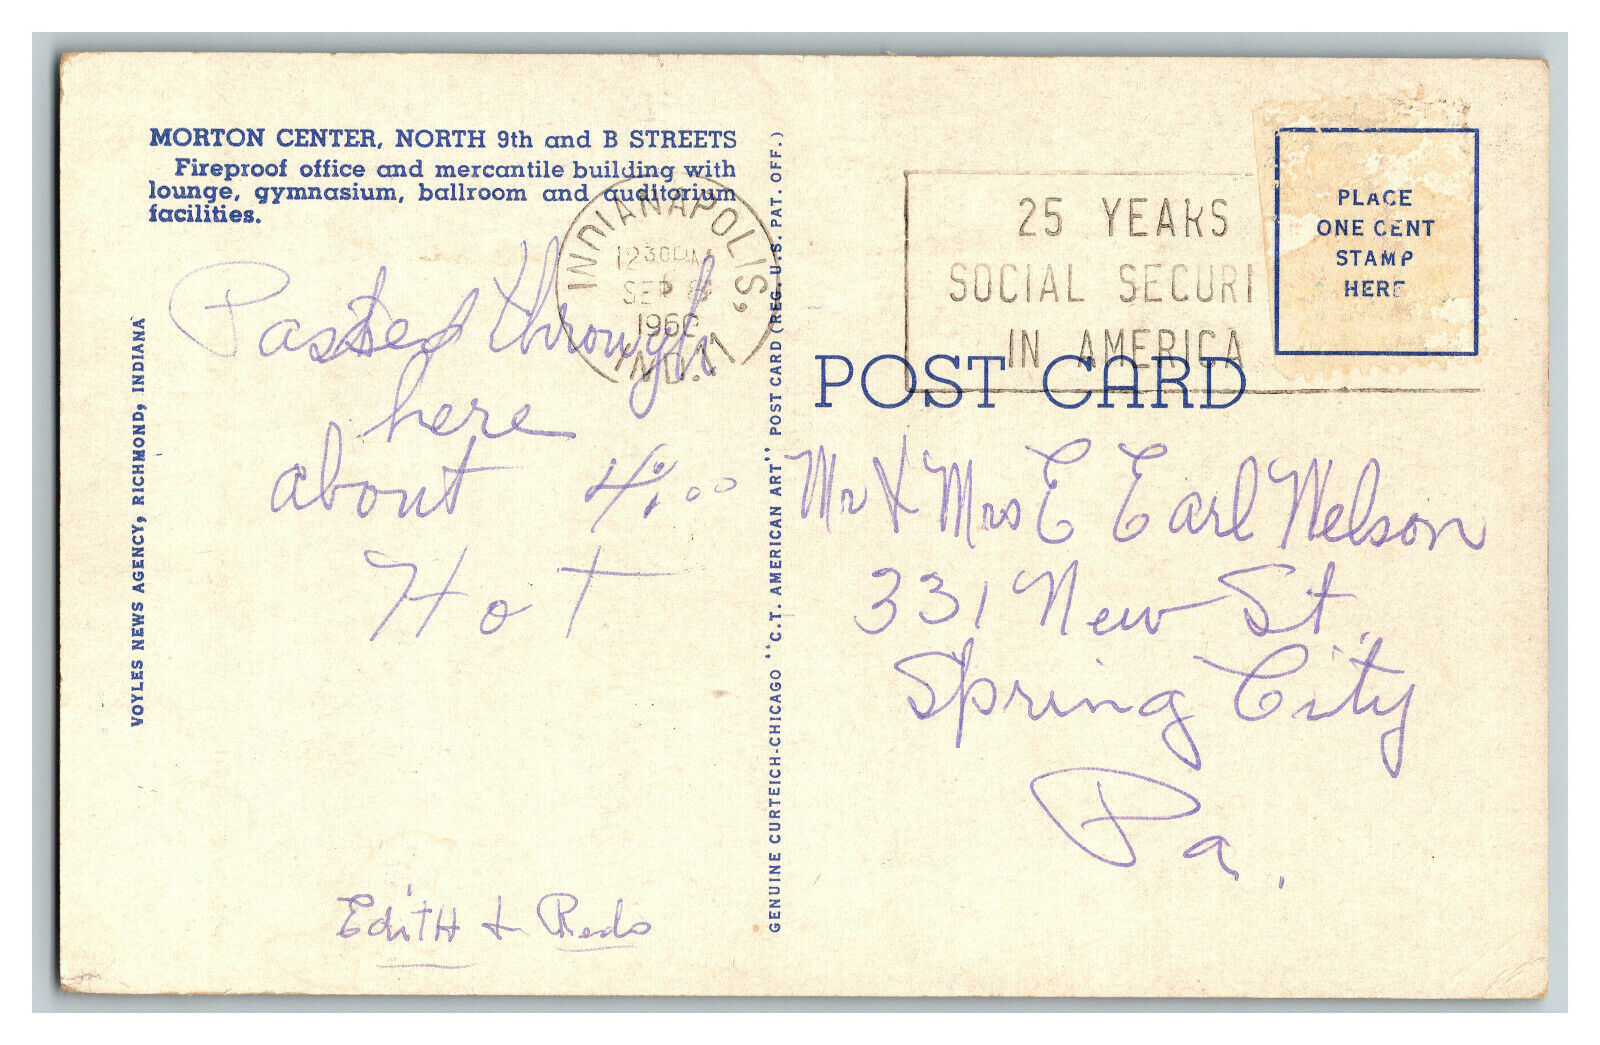 MORTON CENTER, NORTH 9th and B STREETS
Fireproof office and mercantile building with
lounge, gymnasium, ballroom and auditorium
facilities.
Passed through
here
about 4:00
Hot
Edith & Reds
VOYLES NEWS AGENCY, RICHMOND, INDIANA
GENUINE CURTEICH-CHICAGO "C.T. AMERICAN ART" POST CARD (REG. U.S. PAT. OFF.)
INDIANAPOLIS, IND. 11
1230PM
SEP 8
1960
25 YEARS
SOCIAL SECURI
IN AMERICA
PLACE
ONE CENT
STAMP
HERE
POST CARD
Mr & Mrs E Earl Nelson
331 New St.
Spring City
Pa.